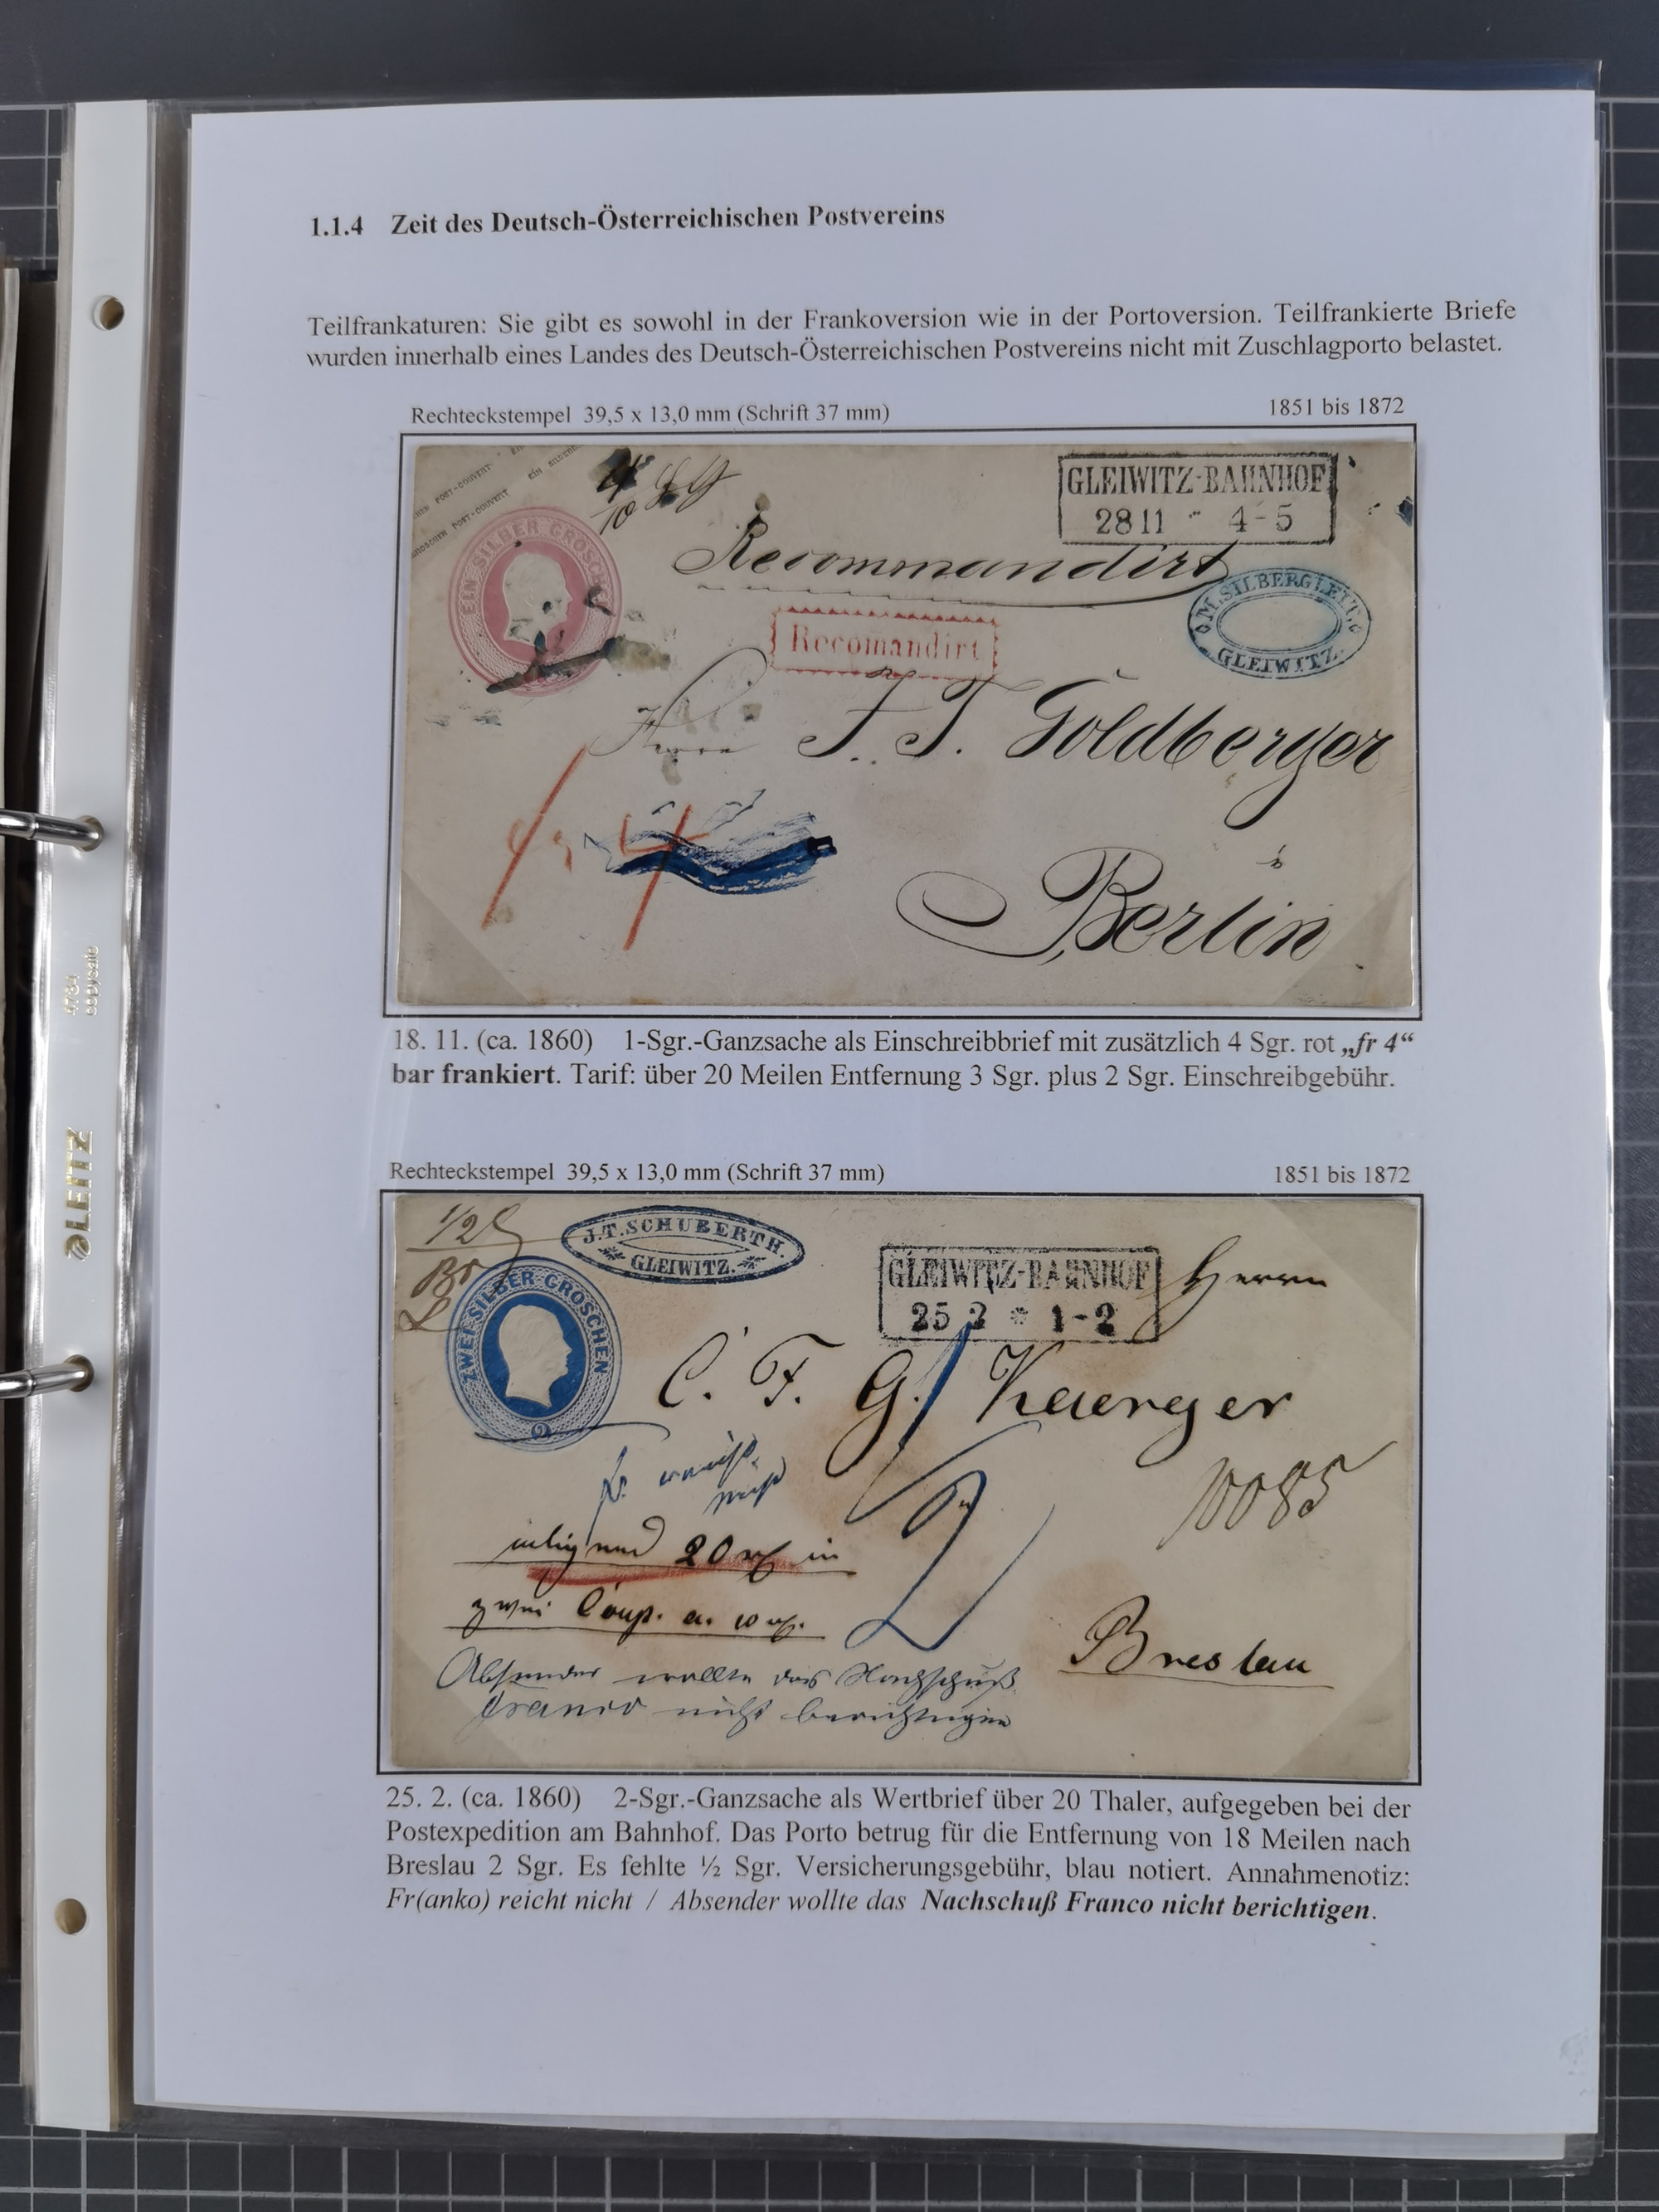 1.1.4 Zeit des Deutsch-Österreichischen Postvereins
Teilfrankaturen: Sie gibt es sowohl in der Frankoversion wie in der Portoversion. Teilfrankierte Briefe
wurden innerhalb eines Landes des Deutsch-Österreichischen Postvereins nicht mit Zuschlagporto belastet.
Rechteckstempel 39,5 x 13,0 mm (Schrift 37 mm) 1851 bis 1872
POST-COUVERT EIN SILBER
GROSCHEN POST-COUVERT
EIN SILBER GROSCHEN
GLEIWITZ-BAHNHOF
28 11 * 4-5
Recommandirt
M. SILBERGLEIT.
GLEIWITZ.
Recomandirt
Herrn J. T. Goldberger
fr 4
Berlin
18. 11. (ca. 1860) 1-Sgr.-Ganzsache als Einschreibbrief mit zusätzlich 4 Sgr. rot „fr 4“
bar frankiert. Tarif: über 20 Meilen Entfernung 3 Sgr. plus 2 Sgr. Einschreibgebühr.
Rechteckstempel 39,5 x 13,0 mm (Schrift 37 mm) 1851 bis 1872
1/2
J.T. SCHUBERTH.
GLEIWITZ.
ZWEI SILBER GROSCHEN
2
GLEIWITZ-BAHNHOF
25 2 * 1-2
Herrn
C. F. G. Kaerger
fr. reicht
nicht
10085
1/2
20 in
zwei Coup. a. 10
Breslau
Absender wollte das Nachschuß
Franco nicht berichtigen
25. 2. (ca. 1860) 2-Sgr.-Ganzsache als Wertbrief über 20 Thaler, aufgegeben bei der
Postexpedition am Bahnhof. Das Porto betrug für die Entfernung von 18 Meilen nach
Breslau 2 Sgr. Es fehlte ½ Sgr. Versicherungsgebühr, blau notiert. Annahmenotiz:
Fr(anko) reicht nicht / Absender wollte das Nachschuß Franco nicht berichtigen.
LEITZ
4784
copysafe